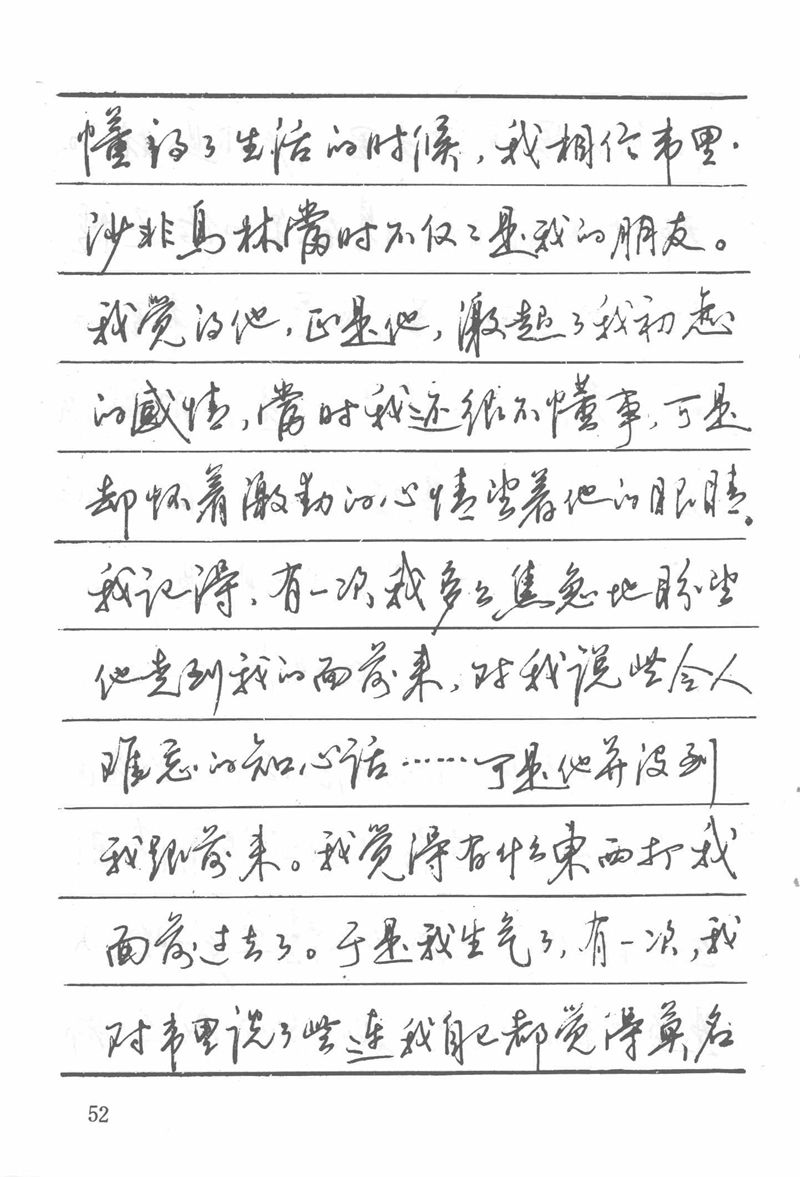 懂得了生活的时候，我相信韦里·
沙非乌林当时不仅仅是我的朋友。
我觉得他，正是他，激起了我初恋
的感情，当时我还很不懂事，可是
却怀着激动的心情望着他的眼睛。
我记得，有一次，我多么焦急地盼望
他走到我的面前来，对我说些令人
难忘的知心话……可是他并没到
我跟前来。我觉得有什么東西打我
面前过去了。于是我生气了，有一次，我
对韦里说了些连我自己都觉得莫名
52